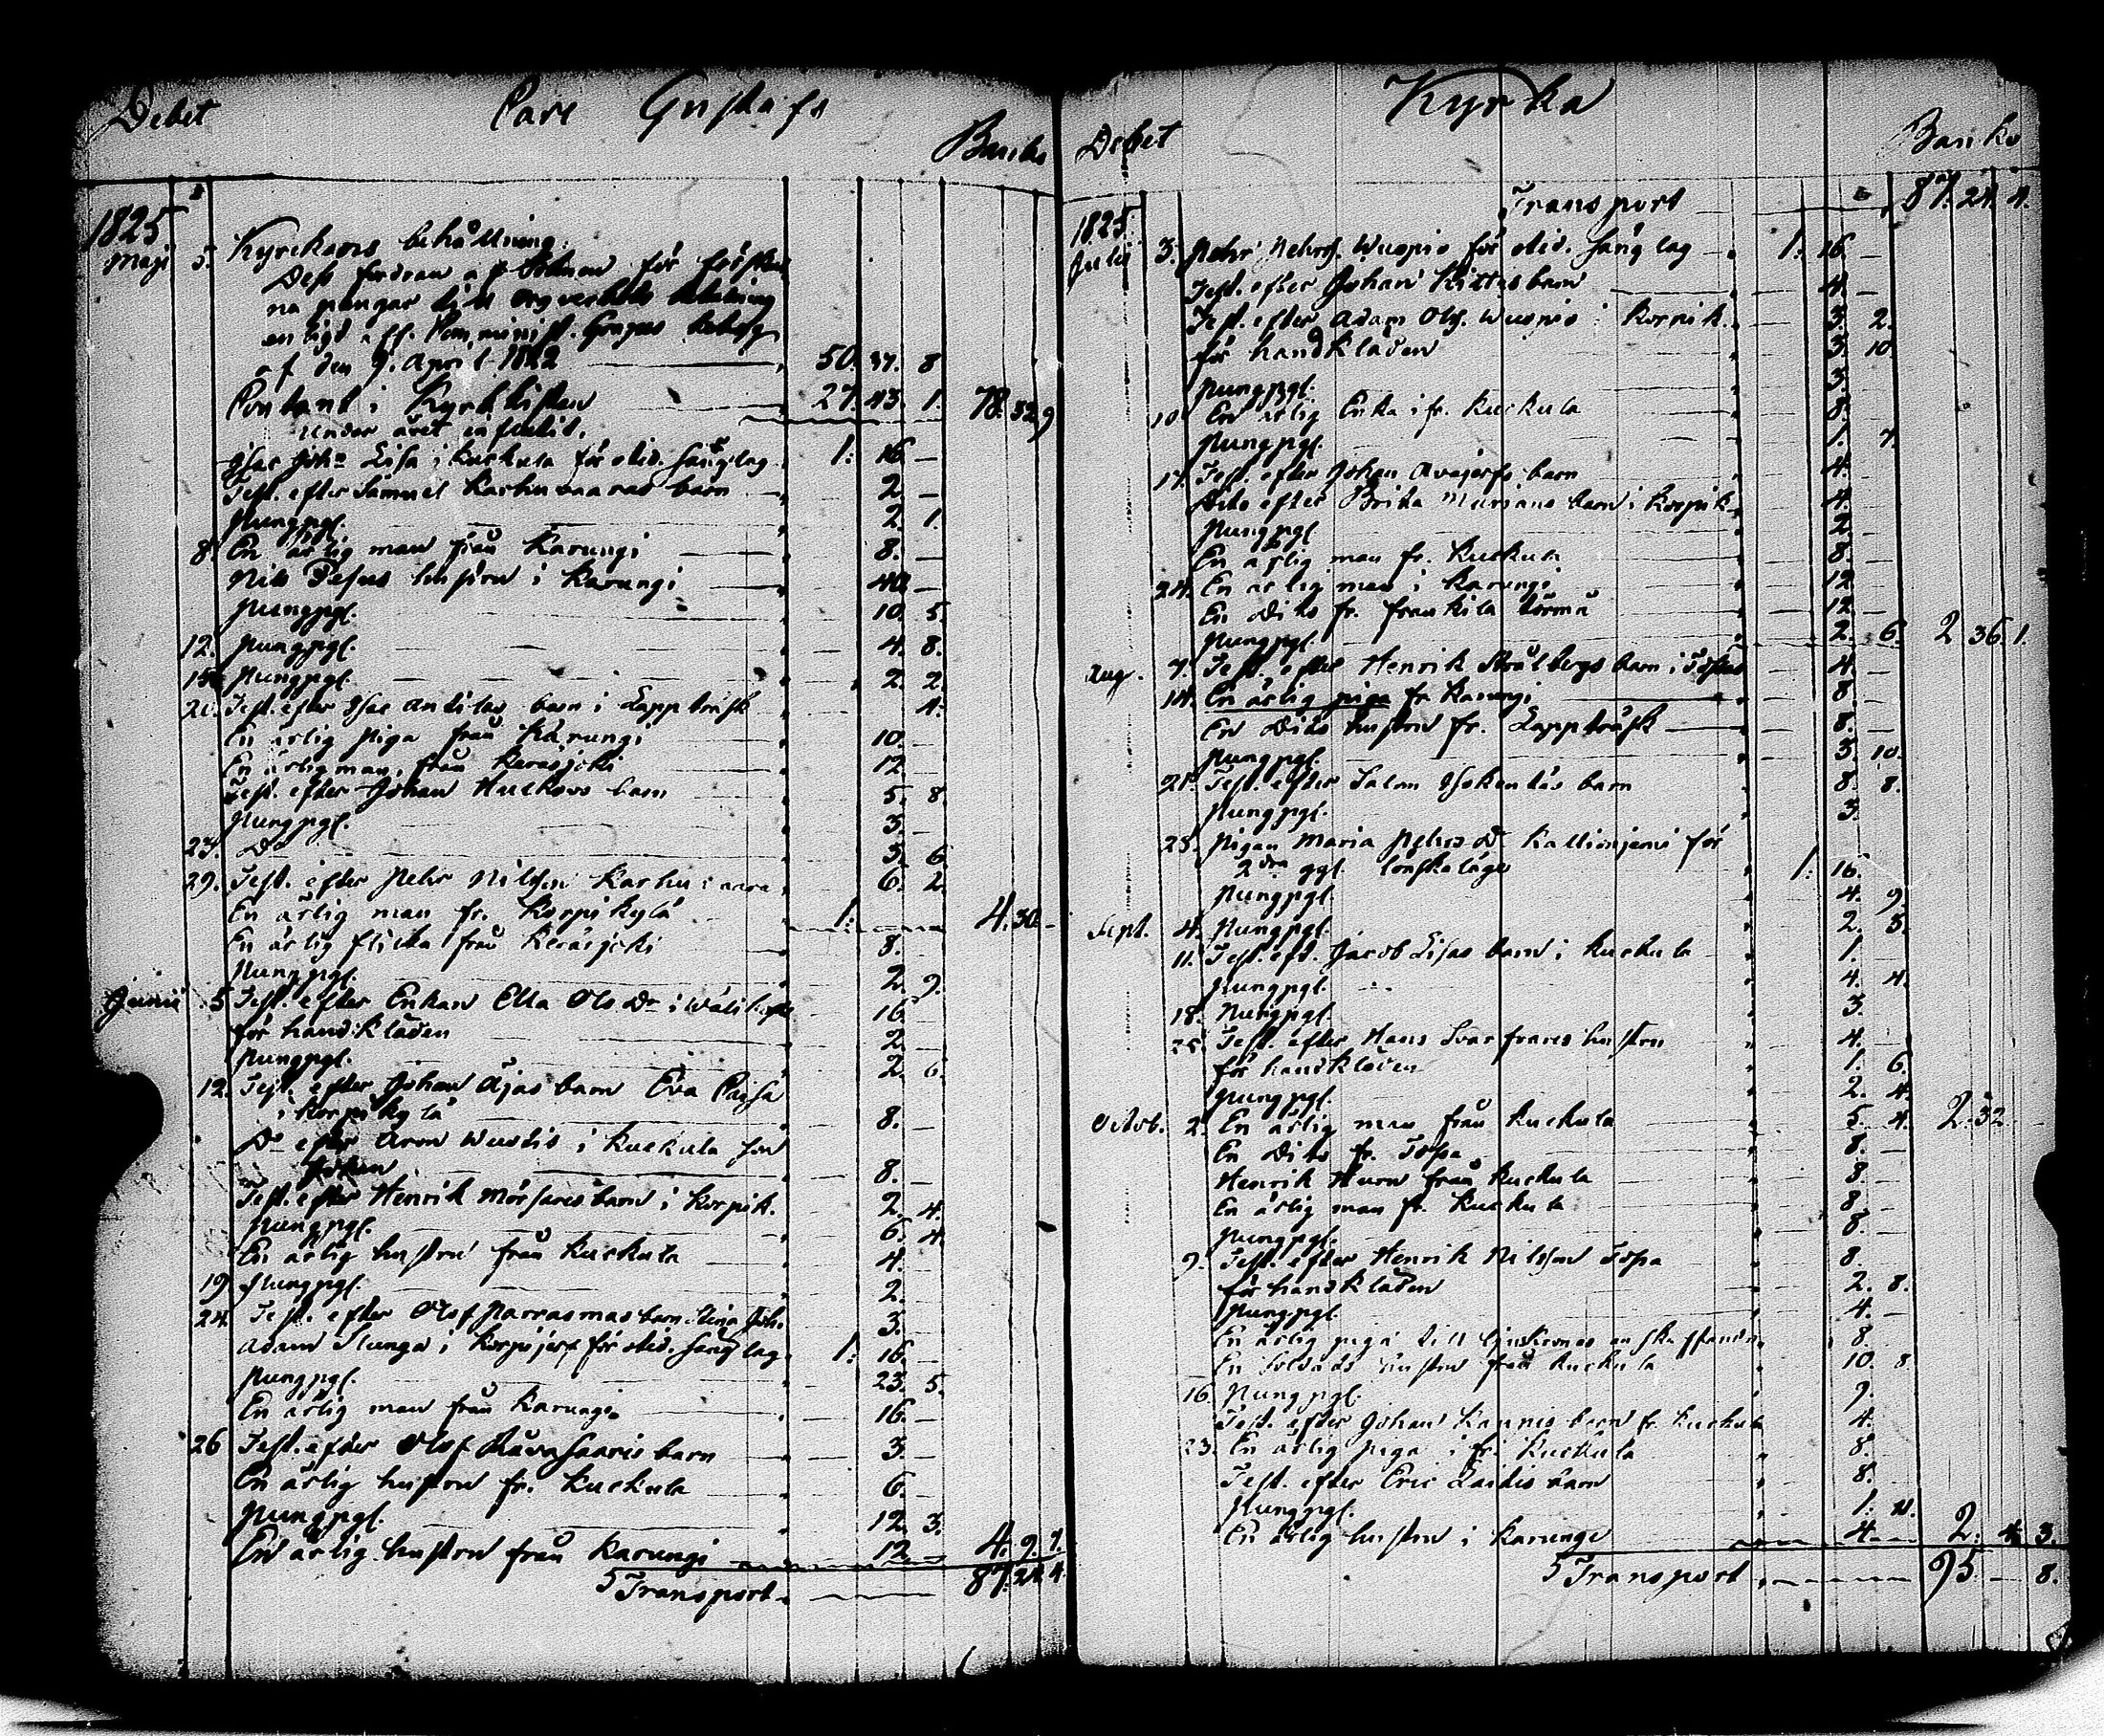 Debet Carl Gustafs
Banko
1825
Maji 5. Kyrckans behållning:
Dess fordran af för
na pengar till
enligt Comminist.
af den 9. April 1822 50. 37. 8
Contant i Kyrkkistan 27. 43. 1. 78. 32. 9
under året influtit.
Isac Joh: Lisa i Kuckula för 1: 16. —
Test. efter Samuel Karhuvaaras barn 2. —
Pungpgl. 2. 1.
8. En ärlig man från Karungi 8. —
Nils hustru i Karungi 40. —
Pungpgl. 10. 5.
12. Pungpgl. 4. 8.
15. Pungpgl. 2. 2.
20. Test. efter Isac Antilas barn i Lappträsk 4.
En ärlig piga från Karungi 10. —
En ärlig man från Keräsjoki 12. —
Test. efter Johan barn 5. 8.
Pungpgl. 3. —
23. Do 3. 6.
29. Test. efter Pehr Nilsson Karhuvaara 6. 2.
En ärlig man fr. Korpikylä 1: — 4. 30. —
En ärlig flicka från Keräsjoki 8. —
Pungpgl. 2. 9.
Junii 5. Test. efter Enkan Ella Ols Dr i 16.
för handkläden 2.
Pungpgl. 2. 6.
12. Test. efter Johan Äjas barn Eva Caisa
i Korpikylä 8. —
Do efter Aron i Kuckula son
Johan 8. —
Test. efter Henrik barn i Korpik. 2. 4.
Pungpgl. 6. 4.
En ärlig hustru från Kuckula 4. —
19. Pungpgl. 2. —
24. Test. efter Olof barn 3. —
Adam Slunga i Korpijerf för 1: 16. —
Pungpgl. 23. 5.
En ärlig man från Karungi 16. —
26 Test. efter Olof barn 3. —
En ärlig hustru fr. Kuckula 6. —
Pungpgl. 12. 3.
En ärlig hustru från Karungi 12. — 4. 9. 7.
Transport 87. 24. 4.
Debet Kyrka
Banko
Transport 87. 24. 4.
1825.
Julii 3. Pehr Pehrs. Wuopio för 1: 16. —
Test. efter Johan Kittis barn 4. —
Test. efter Adam Ols. Wuopio i Korpik. 3. 2.
för handkläden 3. 10.
Pungpgl. 3.
10. En ärlig Enka i fr. Kuckula 8.
Pungpgl. 1. 7.
17. Test. efter Johan barn 4.
Dito efter Brita barn i Korpik. 4.
Pungpgl. 2.
En ärlig man fr. Kuckula 8.
24. En ärlig man i Karungi 12.
En Dito fr. 12. —
Pungpgl. 2. 6. 2. 36. 1.
Aug. 7. Test. efter Henrik Strålbergs barn i 4. —
14. En ärlig piga fr Karungi 8. —
En Dito hustru fr. Lappträsk 8. —
Pungpgl. 3. 10.
21. Test. efter barn 8. 8.
Pungpgl. 3.
28. Pigan Maria Pehrs Dr för
2dra ggl. 1: 16.
Pungpgl. 4. 9.
Sept. 4. Pungpgl. 2. 3.
11. Test. eft. Jacob Lisas barn i Kuckula 1.
Pungpgl. 4. 4.
18. Pungpgl. 3.
25. Test. efter Hans hustru 4. —
för handkläden 1. 6.
Pungpgl. 2. 4.
Octob. 2. En ärlig man från Kuckula 5. 4. 2. 32.
En Dito fr. 8. —
Henrik från Kuckula 8. —
En ärlig man fr. Kuckula 8. —
Pungpgl. 8. —
9. Test. efter Henrik Nilsson 8.
för handkläden 2. 8.
Pungpgl. 4. —
En ärlig piga till anskaffande 8.
En Soldats hustru från Kuckula 10. 8
16. Pungpgl. 9.
Test. efter Johan barn fr. Kuckula 4.
23. En ärlig piga i fr. Kuckula 8.
Test. efter Eric barn 8.
Pungpgl. 1. 11.
En ärlig hustru i Karunge 4. — 2. 4. 3.
Transport 95. — 8.